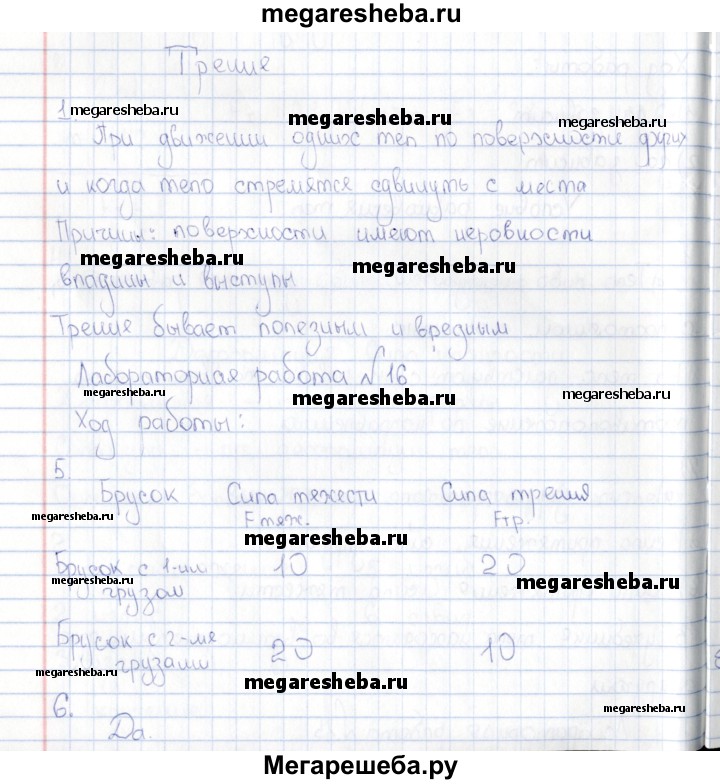 megaresheba.ru
Трение
1. megaresheba.ru
megaresheba.ru
megaresheba.ru
При движении одних тел по поверхности других
и когда тело стремятся сдвинуть с места
Причины: поверхности имеют неровности
megaresheba.ru
megaresheba.ru
впадины и выступы
Трение бывает полезным и вредным
Лабораторная работа №16
megaresheba.ru
megaresheba.ru
megaresheba.ru
Ход работы:
5.
Брусок Сила тяжести Сила трения
Fтяж. Fтр.
megaresheba.ru
megaresheba.ru
megaresheba.ru
Брусок с 1-им 10 20
megaresheba.ru
megaresheba.ru
грузом
Брусок с 2-мя 20 10
грузами
megaresheba.ru
megaresheba.ru
megaresheba.ru
6.
megaresheba.ru
megaresheba.ru
Да.
Мегарешеба.ру